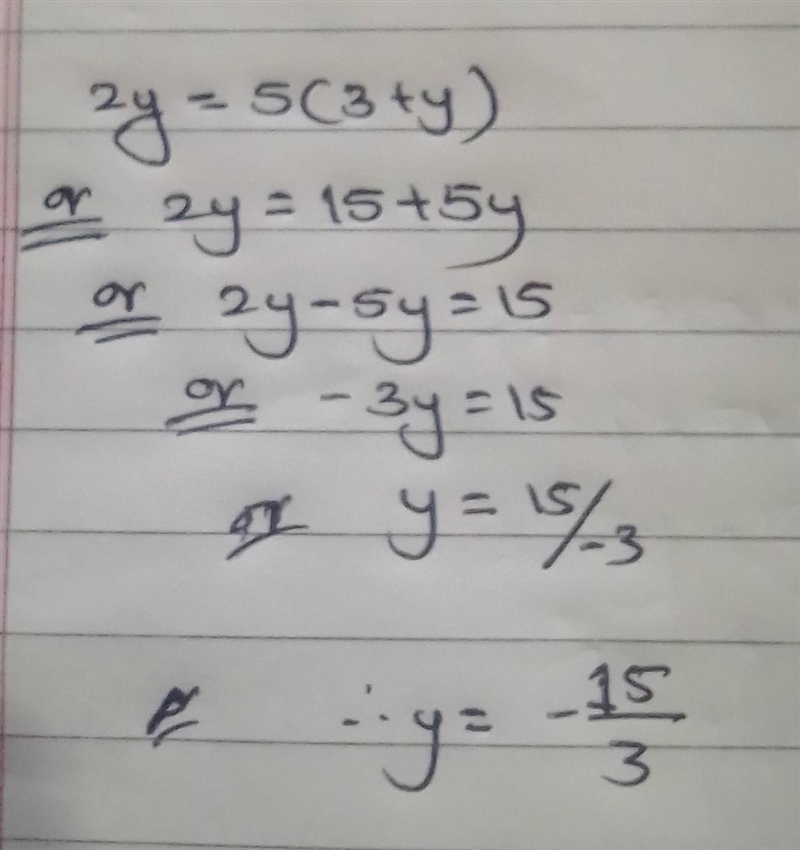 2y = 5(3+y)
or 2y = 15+5y
or 2y-5y = 15
or -3y = 15
or y = 15/-3
∴ y = -15/3